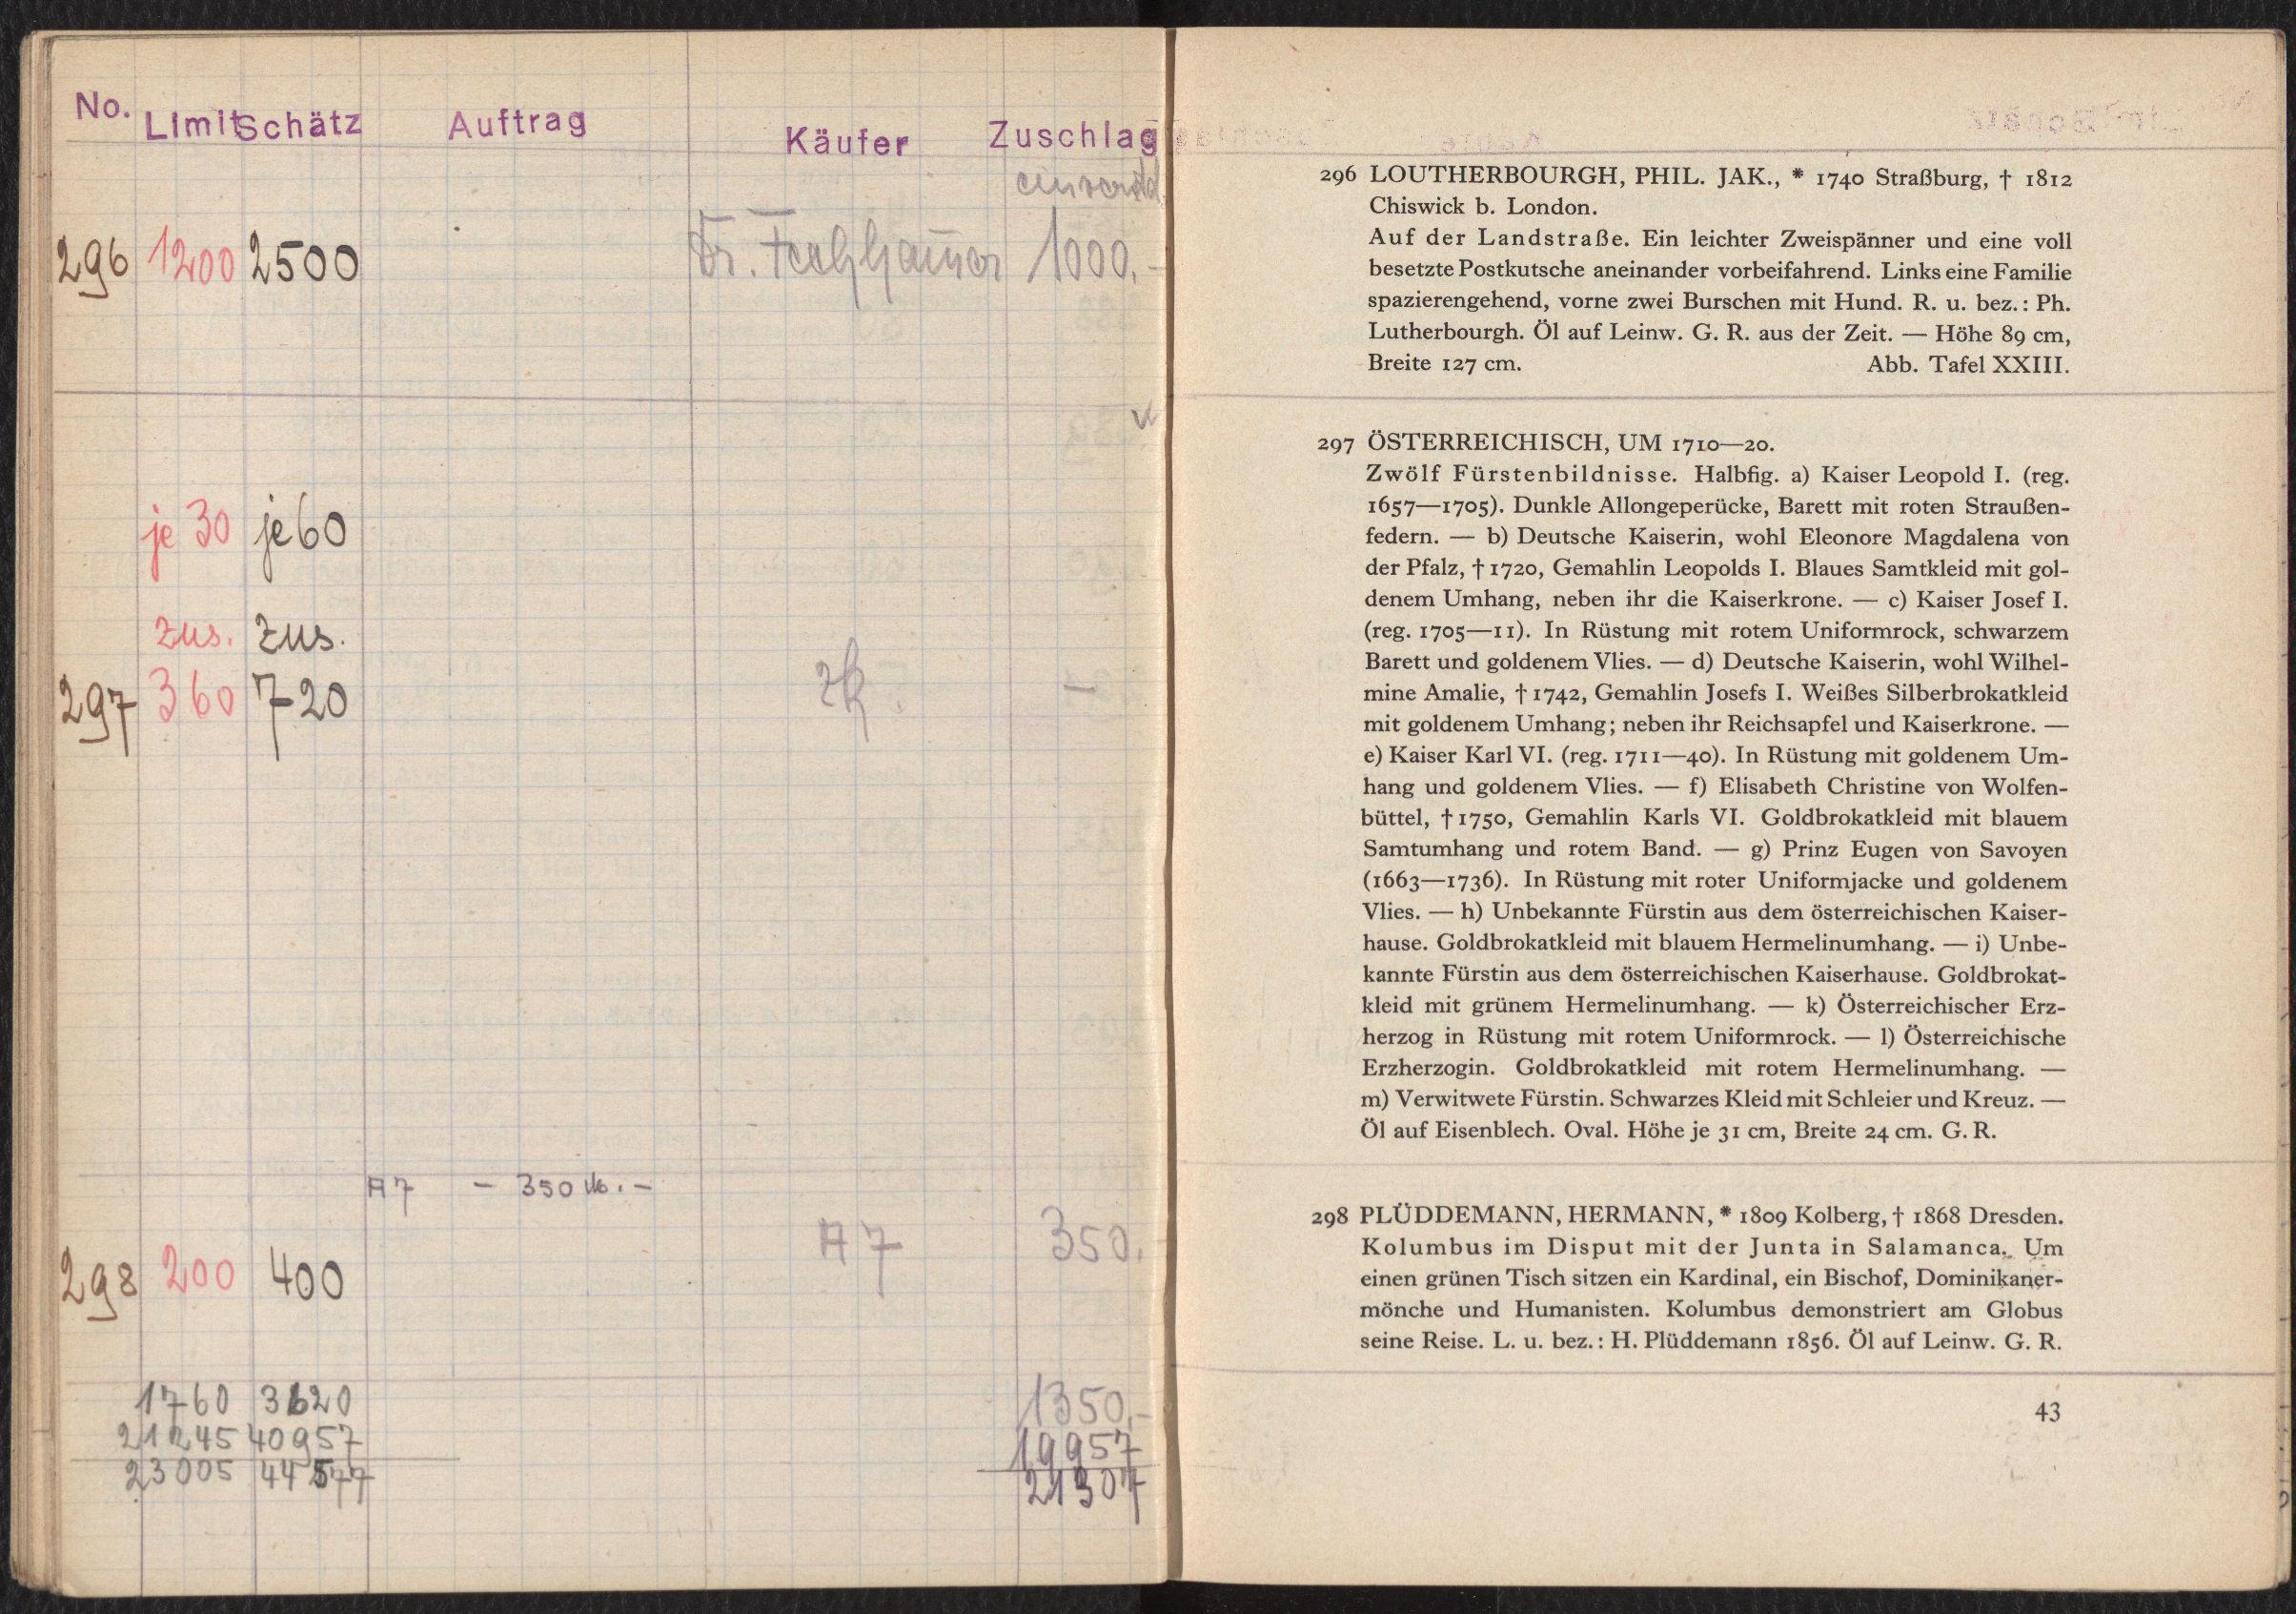 No. Limit Schätz Auftrag Käufer Zuschlag
296 1200 2500 Dr. 1000.-
je 30 je 60
zus. zus.
297 360 720 zk. –
A7 – 350 M. –
A7 350.
298 200 400
1760 3620 1350.-
21245 40957 19957
23005 44577 21307
296 LOUTHERBOURGH, PHIL. JAK., * 1740 Straßburg, † 1812
Chiswick b. London.
Auf der Landstraße. Ein leichter Zweispänner und eine voll
besetzte Postkutsche aneinander vorbeifahrend. Links eine Familie
spazierengehend, vorne zwei Burschen mit Hund. R. u. bez.: Ph.
Lutherbourgh. Öl auf Leinw. G. R. aus der Zeit. — Höhe 89 cm,
Breite 127 cm. Abb. Tafel XXIII.
297 ÖSTERREICHISCH, UM 1710—20.
Zwölf Fürstenbildnisse. Halbfig. a) Kaiser Leopold I. (reg.
1657—1705). Dunkle Allongeperücke, Barett mit roten Straußen-
federn. — b) Deutsche Kaiserin, wohl Eleonore Magdalena von
der Pfalz, † 1720, Gemahlin Leopolds I. Blaues Samtkleid mit gol-
denem Umhang, neben ihr die Kaiserkrone. — c) Kaiser Josef I.
(reg. 1705—11). In Rüstung mit rotem Uniformrock, schwarzem
Barett und goldenem Vlies. — d) Deutsche Kaiserin, wohl Wilhel-
mine Amalie, † 1742, Gemahlin Josefs I. Weißes Silberbrokatkleid
mit goldenem Umhang; neben ihr Reichsapfel und Kaiserkrone. —
e) Kaiser Karl VI. (reg. 1711—40). In Rüstung mit goldenem Um-
hang und goldenem Vlies. — f) Elisabeth Christine von Wolfen-
büttel, † 1750, Gemahlin Karls VI. Goldbrokatkleid mit blauem
Samtumhang und rotem Band. — g) Prinz Eugen von Savoyen
(1663—1736). In Rüstung mit roter Uniformjacke und goldenem
Vlies. — h) Unbekannte Fürstin aus dem österreichischen Kaiser-
hause. Goldbrokatkleid mit blauem Hermelinumhang. — i) Unbe-
kannte Fürstin aus dem österreichischen Kaiserhause. Goldbrokat-
kleid mit grünem Hermelinumhang. — k) Österreichischer Erz-
herzog in Rüstung mit rotem Uniformrock. — l) Österreichische
Erzherzogin. Goldbrokatkleid mit rotem Hermelinumhang. —
m) Verwitwete Fürstin. Schwarzes Kleid mit Schleier und Kreuz. —
Öl auf Eisenblech. Oval. Höhe je 31 cm, Breite 24 cm. G. R.
298 PLÜDDEMANN, HERMANN, * 1809 Kolberg, † 1868 Dresden.
Kolumbus im Disput mit der Junta in Salamanca. Um
einen grünen Tisch sitzen ein Kardinal, ein Bischof, Dominikaner-
mönche und Humanisten. Kolumbus demonstriert am Globus
seine Reise. L. u. bez.: H. Plüddemann 1856. Öl auf Leinw. G. R.
43